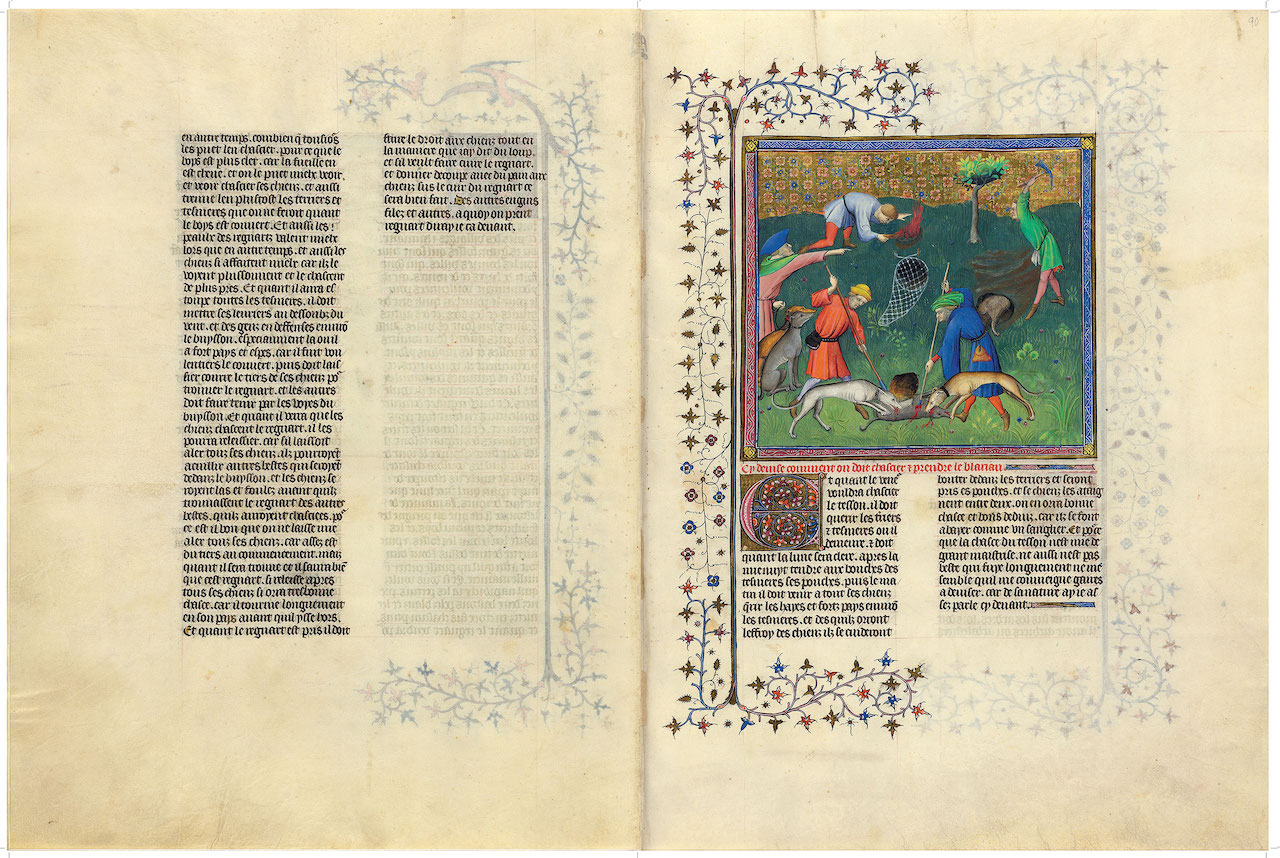 en autre temps. combien q̃ touſiours
les puet len chaſſier. pour ce que le
boys eſt plus cler. car la fueille en
eſt cheue. et on le puet mielx veoir.
et veoir chaſſier ſes chiens. et auſſi
treuue len pluſtoſt les terriers et
teſnieres que on ne feroit quant
le boys eſt couuert. Et auſſi les
peaulx des regnarts valent mielx
lors que en autre temps. et auſſi les
chiens ſi affaitent mielx car ilz le
voyent plus ſouuent et le chaſſent
de plus pres. Et quant il aura eſ
toupe toutes les teſnieres. il doit
mettre ſes leuriers au deſſoubz du
vent. et des gens en deffenſes enuirõ
le buyſſon. eſpeciaument la ou il
a fort pays et eſpes. car il fuit vou
lentiers le couuert. puis doit laiſ
ſier courre le tiers de ſes chiens pour
trouuer le regnart. et les autres
doit faire tenir par les voyes du
buyſſon. Et quant il verra que les
chiens chaſſent le regnart. il les
pourra releiſſier. car ſil laiſſoit
aler tous ſes chiens. ilz pourroyēt
acuillir autres beſtes qui ſeroyēt
dedans le buyſſon. et les chiens ſe
royent las et foulez auant quilz
trouuaſſent le regnart des autres
beſtes. quilz auroyent chaſſees. po᷑
ce eſt il bon que on ne laiſſe mie
aler tous les chiens. car aſſez eſt
du tiers au commencement. mais
quant il ſera trouue et il ſaura biē
que ceſt regnart. ſi releiſſe apres
tous ſes chiens ſi orra treſbonne
chaſſe. car il tourne longuement
en ſon pays auant quil yſſe hors.
Et quant le regnart eſt pris il doit
faire le droit aux chiens tout en
la maniere que iay dit du loup.
et ſil veult faire cuire le regnart.
et donner decoupe auec du pain aux
chiens ſus le cuir du regnart ce
ſera bien fait. Des autres engins
filez et autres. a quoy on prent
regnart diray ie ca deuant.
90
Cy deuiſe comment on doit chaſſier ⁊ prendre le blariau
Et quant le vene᷑
vouldra chaſſier
le teſſon. il doit
querir les t̾riers
⁊ teſnieres ou il
demeure. ⁊ doit
quant la lune ſera clere. apres la
mienuyt tendre aux bouches des
teſnieres ſes pouches. puis le ma
tin il doit venir a tout ſes chiens
q̃rir les hayes et fort pays enuirõ
les teſnieres. et des quilz orront
leffroy des chiens ilz ſe cuideront
bouter dedans les terriers et ſeront
pris es pouches. et ſe chiens les ataig
nent entre deux. on en orra bonne
chaſſe et bons deduis. car ilz ſe font
abayer comme vn ſanglier. Et po᷑ ce
que la chaſſe du teſſon neſt mie de
grant maiſtriſe. ne auſſi neſt pas
beſte qui fuye longuement ne me
ſemble quil me conuieigne gaires
a deuiſer. car de ſa nature ay ie aſ
ſez parle cy deuant.